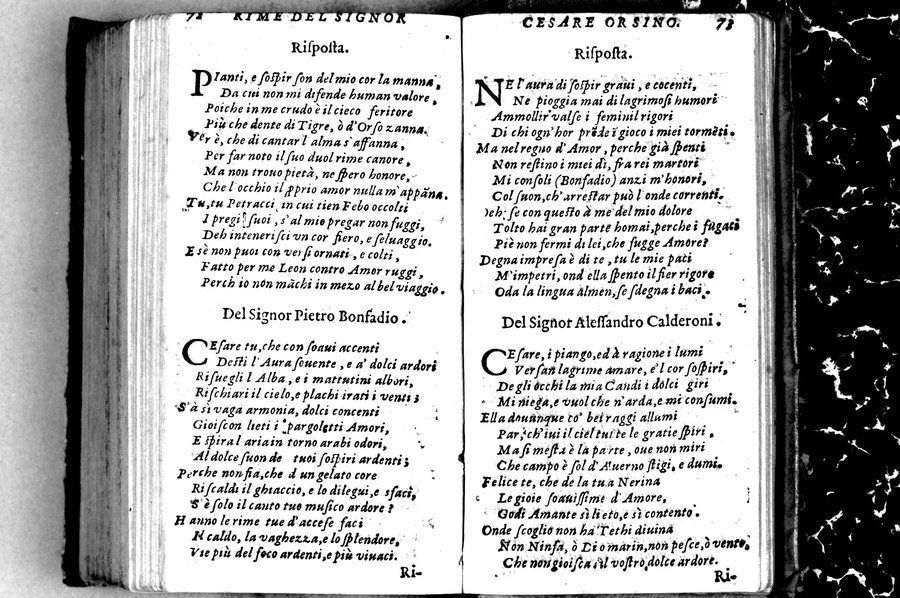 72 RIME DEL SIGNOR
Riſpoſta.
PIanti, e ſoſpir ſon del mio cor la manna,
Da cui non mi difende human valore,
Poiche in me crudo è il cieco feritore
Più che dente di Tigre, ò d'Orſo zanna.
Ver è, che di cantar l'alma s'affanna,
Per far noto il ſuo duol rime canore,
Ma non trouo pietà, ne ſpero honore,
Che l'occhio il ꝓprio amor nulla m'appãna.
Tu, tu Petracci, in cui tien Febo occolti
I pregi ſuoi, s'al mio pregar non fuggi,
Deh inteneriſci vn cor fiero, e ſeluaggio.
E sè non puoi con verſi ornati, e colti,
Fatto per me Leon contro Amor ruggi,
Perch io non mãchi in mezo al bel viaggio.
Del Signor Pietro Bonfadio.
CEſare tu, che con ſoaui accenti
Deſti l'Aura ſouente, e a' dolci ardori
Riſuegli l'Alba, e i mattutini albori,
Riſchiari il cielo, e plachi irati i venti;
S'à sì vaga armonia, dolci concenti
Gioiſcon lieti i pargoletti Amori,
E ſpira l'aria in torno arabi odori,
Al dolce ſuon de tuoi ſoſpiri ardenti;
Perche non fia, che d un gelato core
Riſcaldi il ghiaccio, e lo dilegui, e sfaci,
S'è ſolo il canto tuo muſico ardore?
Hanno le rime tue d'acceſe faci
N caldo, la vaghezza, e lo ſplendore,
Vie più del foco ardenti, e più viuaci.
Ri-
CESARE ORSINO. 73
Riſpoſta.
NE l'aura di ſoſpir graui, e cocenti,
Ne pioggia mai di lagrimoſi humori
Ammollir valſe i feminil rigori
Di chi ogn'hor prẽde ĩ gioco i miei tormẽti.
Ma nel regno d'Amor, perche già ſpenti
Non reſtino i miei dì, fra rei martori
Mi conſoli (Bonfadio) anzi m'honori,
Col ſuon, ch'arreſtar può l'onde correnti.
Deh, ſe con queſto à me del mio dolore
Tolto hai gran parte homai, perche i fugaci
Piè non fermi di lei, che fugge Amore?
Degna impreſa è di te, tu le mie paci
M'impetri, ond ella ſpento il fier rigore
Oda la lingua almen, ſe ſdegna i baci.
Del Signor Aleſſandro Calderoni.
CEſare, i piango, ed à ragione i lumi
Verſan lagrime amare, e'l cor ſoſpiri,
De gli occhi la mia Candi i dolci giri
Mi niega, e vuol che n'arda, e mi conſumi.
Ella dounnque co' bei raggi allumi
Par, ch'iui il ciel tutte le gratie ſpiri,
Ma ſì meſta è la parte, oue non miri
Che campo è ſol d'Auerno ſtigi, e dumi.
Felice te, che de la tua Nerina
Le gioie ſoauiſſime d'Amore,
Godi Amante sì lieto, e sì contento.
Onde ſcoglio non ha Tethi diuina
Non Ninfa, ò Dio marin, non peſce, ò vento,
Che non gioiſca il voſtro dolce ardore.
Ri-